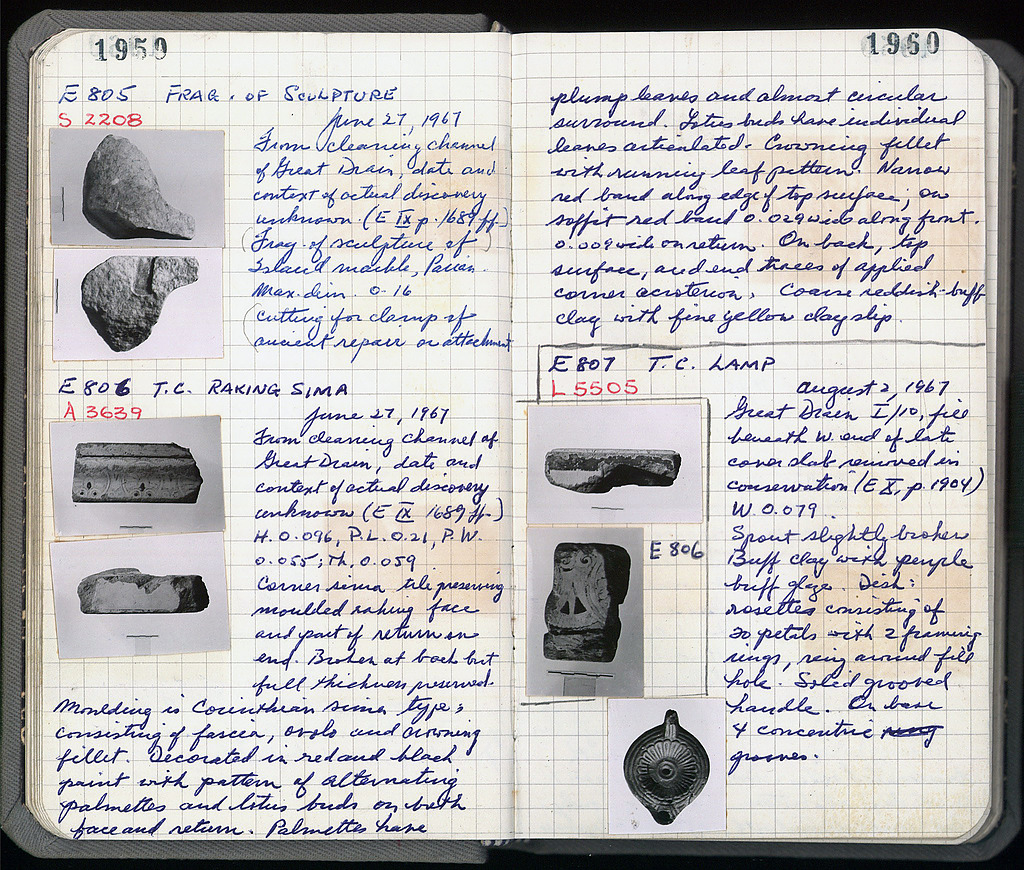 1959
E 805 FRAG. OF SCULPTURE
S 2208
June 27, 1967
From cleaning channel
of Great Drain, date and
context of actual discovery
unknown. (E IX p. 1689 ff.)
(Frag. of sculpture of)
Island marble, Parian.
Max. dim. 0.16
(Cutting for clamp of
ancient repair or attachment
E 806 T.C. RAKING SIMA
A 3639
June 27, 1967
From cleaning channel of
Great Drain, date and
context of actual discovery
unknown (E IX 1689 ff.)
H. 0.096, P.L. 0.21, P.W.
0.055; Th. 0.059
Corner sima tile preserving
moulded raking face
and part of return on
end. Broken at back but
full thickness preserved.
Moulding is Corinthian sima type;
consisting of fascia, ovolo and crowning
fillet. Decorated in red and black
paint with pattern of alternating
palmettes and lotus buds on both
face and return. Palmettes have
1960
plump leaves and almost circular
surround. Lotus buds have individual
leaves articulated. Crowning fillet
with running leaf pattern. Narrow
red band along edge of top surface; on
soffit red band 0.029 wide along front.
0.009 wide on return. On back, top
surface, and end traces of applied
corner acroterion. Coarse reddish-buff
clay with fine yellow clay slip.
E 807 T.C. LAMP
L 5505
August 2, 1967
Great Drain I/10, fill
beneath W. end of late
cover slab removed in
conservation (E X, p. 1904)
W. 0.079.
Spout slightly broken
Buff clay with purple
buff glaze. Disk:
rosettes consisting of
20 petals with 2 framing
rings, ring around fill
hole. Solid grooved
handle. On base
4 concentric ring
grooves.
E 806